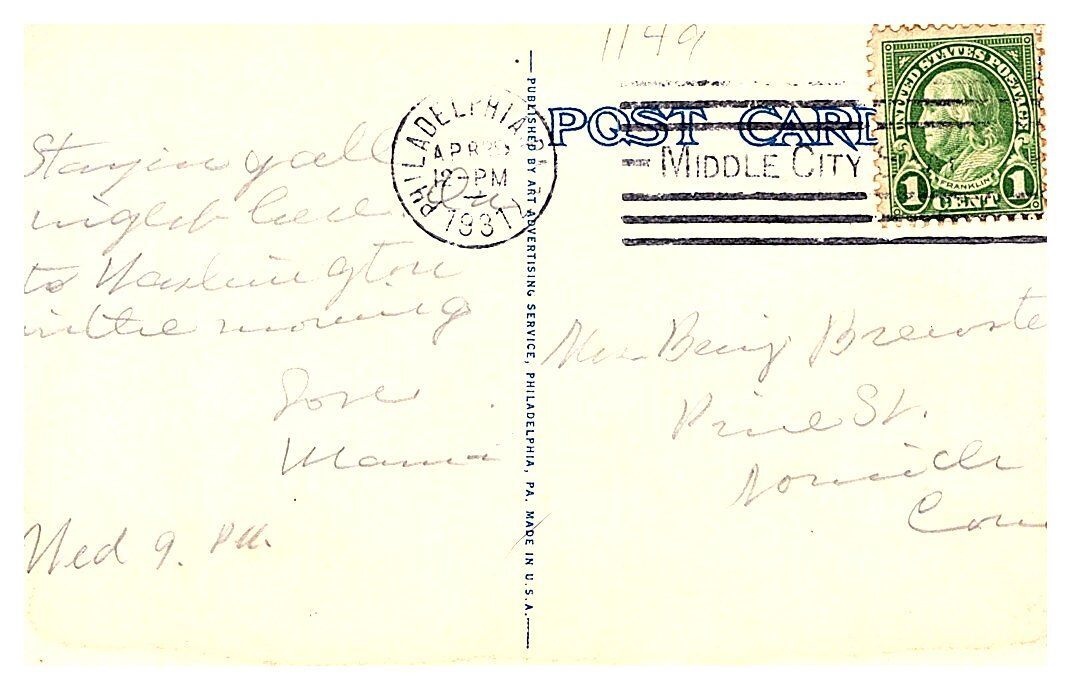 1149
POST CARD
PHILADELPHIA
APR
12 PM
1931
MIDDLE CITY
UNITED STATES POSTAGE
FRANKLIN
1 CENT 1
Staying all
night here On
to Washington
in the morning
Love
Mami
Wed 9. PM.
PUBLISHED BY ART ADVERTISING SERVICE, PHILADELPHIA, PA. MADE IN U.S.A.
Brewste
Pine St.
Norwich
Con